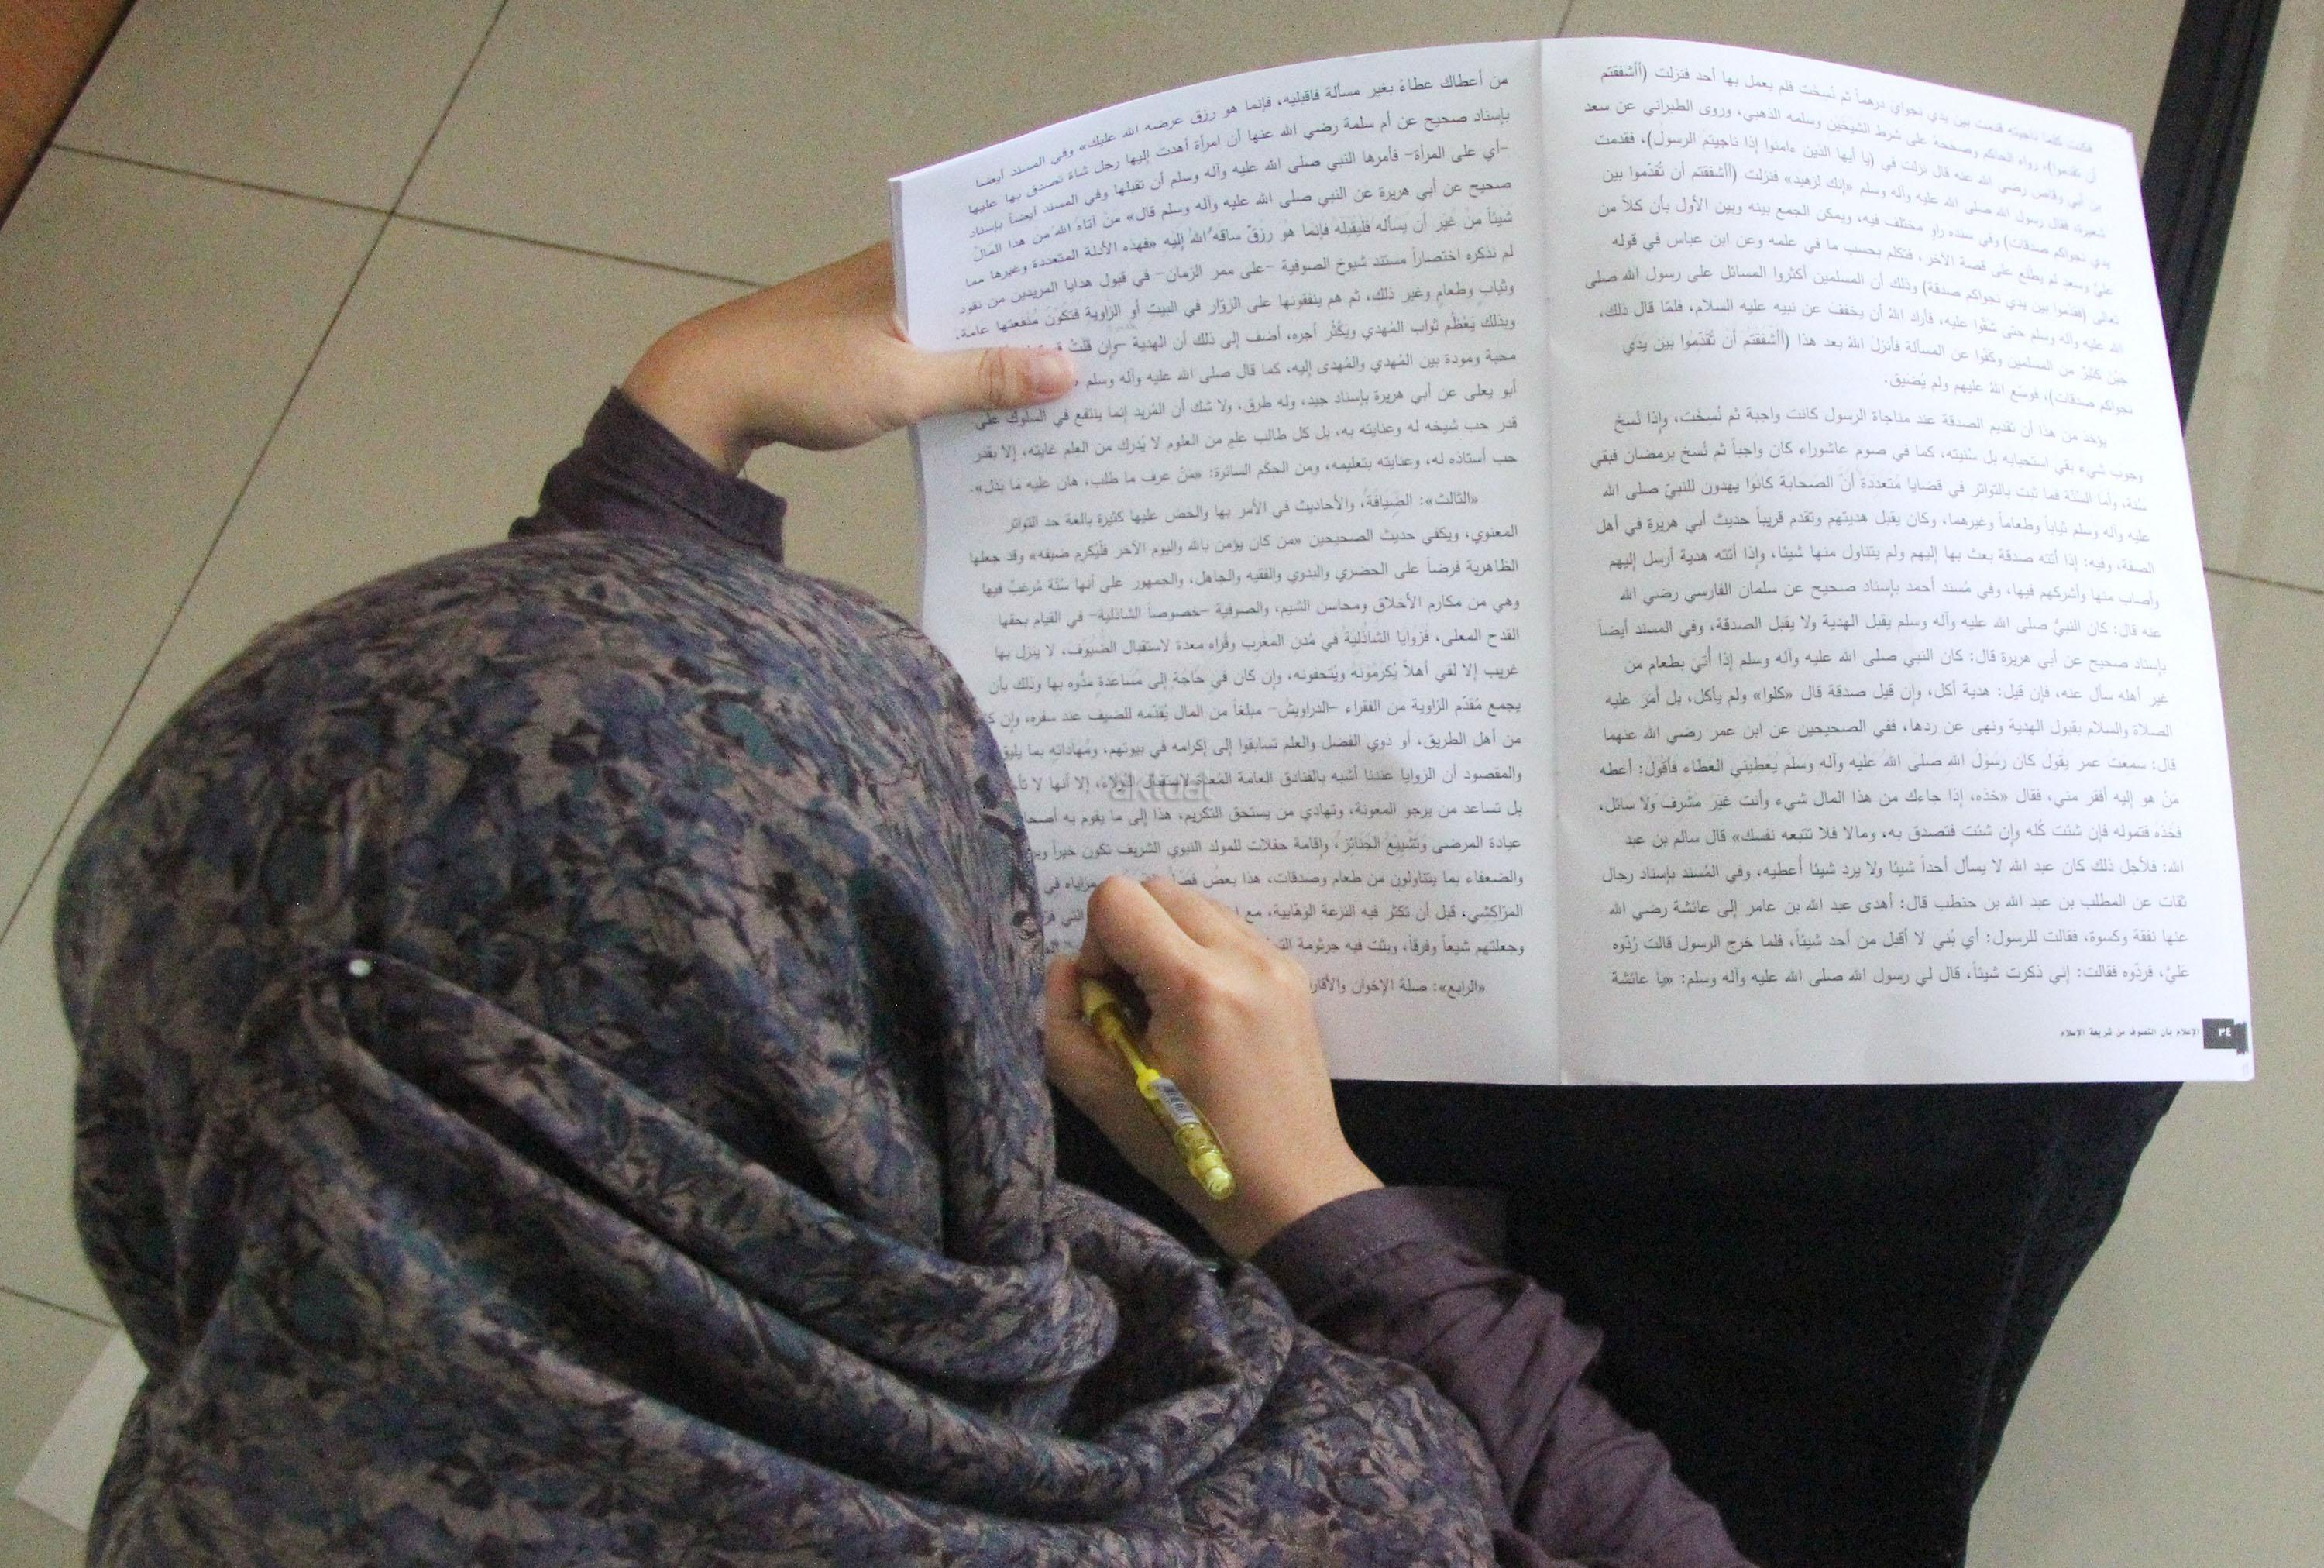 فكنت كلما ناجيته قدمت بين يدي نجواي درهماً ثم نسخت فلم يعمل بها أحد فنزلت (أأشفقتم
أن تقدموا)، رواه الحاكم وصححه على شرط الشيخين وسلمه الذهبي، وروى الطبراني عن سعد
بن أبي وقاص رضي الله عنه قال نزلت في (يا أيها الذين ءامنوا إذا ناجيتم الرسول)، فقدمت
شعيرة، فقال رسول الله صلى الله عليه وآله وسلم «إنك لزهيد» فنزلت (أأشفقتم أن تُقدّموا بين
يدي نجواكم صدقات) وفي سنده راو مختلف فيه، ويمكن الجمع بينه وبين الأول بأن كلاً من
عليّ وسعد لم يطلع على قصة الآخر، فتكلم بحسب ما في علمه وعن ابن عباس في قوله
تعالى (فقدّموا بين يدي نجواكم صدقة) وذلك أن المسلمين أكثروا المسائل على رسول الله صلى
الله عليه وآله وسلم حتى شقّوا عليه، فأراد اللهُ أن يخفف عن نبيه عليه السلام، فلمّا قال ذلك،
جبُن كثيرٌ من المسلمين وكفّوا عن المسألة فأنزل اللهُ بعد هذا (أأشفقتم أن تُقدّموا بين يدي
نجواكم صدقات)، فوسّع اللهُ عليهم ولم يُضيق.
يؤخذ من هذا أن تقديم الصدقة عند مناجاة الرسول كانت واجبة ثم نُسخت، وإذا نُسخ
وجوب شيء بقي استحبابه بل سُنيته، كما في صوم عاشوراء كان واجباً ثم نُسخ برمضان فبقي
سُنة، وأما السُّنّة فما ثبت بالتواتر في قضايا متعددة أنّ الصحابة كانوا يهدون للنبيّ صلى الله
عليه وآله وسلم ثياباً وطعاماً وغيرهما، وكان يقبل هديتهم وتقدم قريباً حديث أبي هريرة في أهل
الصفة، وفيه: إذا أتته صدقة بعث بها إليهم ولم يتناول منها شيئا، وإذا أتته هدية أرسل إليهم
وأصاب منها وأشركهم فيها، وفي مُسند أحمد بإسناد صحيح عن سلمان الفارسي رضي الله
عنه قال: كان النبيُّ صلى الله عليه وآله وسلم يقبل الهدية ولا يقبل الصدقة، وفي المسند أيضاً
بإسناد صحيح عن أبي هريرة قال: كان النبي صلى الله عليه وآله وسلم إذا أُتيَ بطعام من
غير أهله سأل عنه، فإن قيل: هدية أكل، وإن قيل صدقة قال «كلوا» ولم يأكل، بل أمَرَ عليه
الصلاة والسلام بقبول الهدية ونهى عن ردها، ففي الصحيحين عن ابن عمر رضي الله عنهما
قال: سمعت عمر يقول كان رسول الله صلى الله عليه وآله وسلم يُعطيني العطاء فأقول: أعطه
مَنْ هو إليه أفقر مني، فقال «خذه، إذا جاءك من هذا المال شيء وأنت غيرَ مشرف ولا سائل،
فخذه فتموله فإن شئت كُله وإن شئت فتصدق به، ومالا فلا تتبعه نفسك» قال سالم بن عبد
الله: فلأجل ذلك كان عبد الله لا يسأل أحداً شيئا ولا يرد شيئا أُعطيه، وفي المُسند بإسناد رجال
ثقات عن المطلب بن عبد الله بن حنطب قال: أهدى عبد الله بن عامر إلى عائشة رضي الله
عنها نفقة وكسوة، فقالت للرسول: أي بُني لا أقبل من أحد شيئاً، فلما خرج الرسول قالت رُدّوه
عَليَّ، فردّوه فقالت: إني ذكرت شيئاً، قال لي رسول الله صلى الله عليه وآله وسلم: «يا عائشة
٣٤ الإعلام بأن التصوف من شريعة الإسلام
من أعطاك عطاءً بغير مسألة فاقبليه، فإنما هو رزق عرضه الله عليك» وفي المسند أيضا
بإسناد صحيح عن أم سلمة رضي الله عنها أن امرأة أهدت إليها رجل شاة تصدق بها عليها
-أي على المرأة- فأمرها النبي صلى الله عليه وآله وسلم أن تقبلها وفي المسند أيضاً بإسناد
صحيح عن أبي هريرة عن النبي صلى الله عليه وآله وسلم قال» من آتاه الله من هذا المال
شيئاً من غير أن يسأله فليقبله فإنما هو رزقٌ ساقه اللهُ إليه «فهذه الأدلة المتعددة وغيرها مما
لم نذكره اختصاراً مستند شيوخ الصوفية -على ممر الزمان- في قبول هدايا المريدين من نقود
وثياب وطعام وغير ذلك، ثم هم ينفقونها على الزوّار في البيت أو الزاوية فتكون منفعتها عامة،
وبذلك يَعْظُم ثواب المُهدي ويَكثُر أجره، أضف إلى ذلك أن الهدية -وإن قلتْ
محبة ومودة بين المُهدي والمُهدى إليه، كما قال صلى الله عليه وآله وسلم
أبو يعلى عن أبي هريرة بإسناد جيد، وله طرق، ولا شك أن المُريد إنما ينتفع في السلوك على
قدر حب شيخه له وعنايته به، بل كل طالب علم من العلوم لا يُدرك من العلم غايته، إلا بقدر
حب أستاذه له، وعنايته بتعليمه، ومن الحكم السائرة: «مَنْ عرف ما طلب، هان عليه ما بذل».
«الثالث»: الضيافة، والأحاديث في الأمر بها والحض عليها كثيرة بالغة حد التواتر
المعنوي، ويكفي حديث الصحيحين «من كان يؤمن بالله واليوم الآخر فليُكرم ضيفه» وقد جعلها
الظاهرية فرضاً على الحضري والبدوي والفقيه والجاهل، والجمهور على أنها سنّة مُرغبٌ فيها
وهي من مكارم الأخلاق ومحاسن الشيم، والصوفية -خصوصاً الشاذلية- في القيام بحقها
القدح المعلى، فزوايا الشاذلية في مُدن المغرب وقُراه معدة لاستقبال الضيوف، لا ينزل بها
غريب إلا لقي أهلاً يُكرمُونَهُ ويُتحفونه، وإن كان في حاجة إلى مساعدة مدُّوه بها وذلك بأن
يجمع مُقدّم الزاوية من الفقراء -الدراويش- مبلغاً من المال يُقدّمه للضيف عند سفره، وإن
من أهل الطريق، أو ذوي الفضل والعلم تسابقوا إلى إكرامه في بيوتهم، ومُهاداته بما يليق
والمقصود أن الزوايا عندنا أشبه بالفنادق العامة المُعدة لاستقبال النزلاء، إلا أنها لا
بل تساعد من يرجو المعونة، وتهادي من يستحق التكريم، هذا إلى ما يقوم به
عيادة المرضى وتَشْييع الجنائز، وإقامة حفلات للمولد النبوي الشريف تكون خيراً
والضعفاء بما يتناولون من طعام وصدقات، هذا بعض مزاياه في
المرّاكشي، قبل أن تكثر فيه النزعة الوهّابية، مع التي
وجعلتهم شيعاً وفرقاً، وبثت فيه جرثومة
«الرابع»: صلة الإخوان والأقارب
aktual